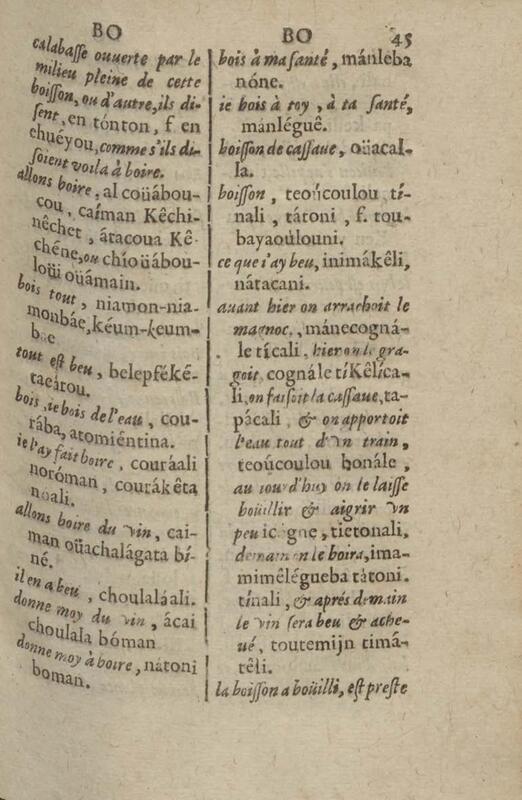 BO
calabaſſe ouuerte par le
milieu pleine de cette
boiſſon, ou d'autre, ils di-
ſent, en tónton, f. en
chuéyou, comme s'ils di-
ſoient voila à boire.
allons boire, al coüábou-
cou, caíman Kêchi-
nêchet, átacoua Kê-
chéne, ou chíoüábou-
loüi oüámain.
bois tout, niamon-nia-
monbáe, kéum-keum-
bae
tout est beu, belepféké-
tacátou.
bois, ie bois de l'eau, cou-
rába, atomiéntina.
ie l'ay fait boire, couráali
noróman, courákêta
noali.
allons boire du vin, cai-
man oüachalágata bí-
né.
il en a beu, choulaláali.
donne moy du vin, ácai
choulala bóman
donne moy à boire, natoni
boman.
BO 45
bois à ma santé, mánleba
nóne.
ie bois à toy, à ta ſanté,
manléguê.
boiſſon de caſſaue, oüacal-
la.
boiſſon, teoúcoulou tí-
nali, tátoni, f. tou-
bayaoúlouni.
ce que i'ay beu, inimákêli,
nátacani.
auant hier on arrachoit le
magnoc, mánecogná-
le tícali, hier on le gra-
goit, cognále tíKêlíca-
li, on faiſoit la caſſaue, ta-
pácali, & on apportoit
l'eau tout d'vn train,
teoúcoulou bonále,
au iourd'huy on le laiſſe
boüillir & aigrir vn
peu tietonali,
demain on le boira, ima-
mimêlégueba tátoni.
tínali, & aprés demain
le vin ſera beu & ache-
ué, toutemijn timá-
têli.
la boiſſon a boüilli, eſt preſte